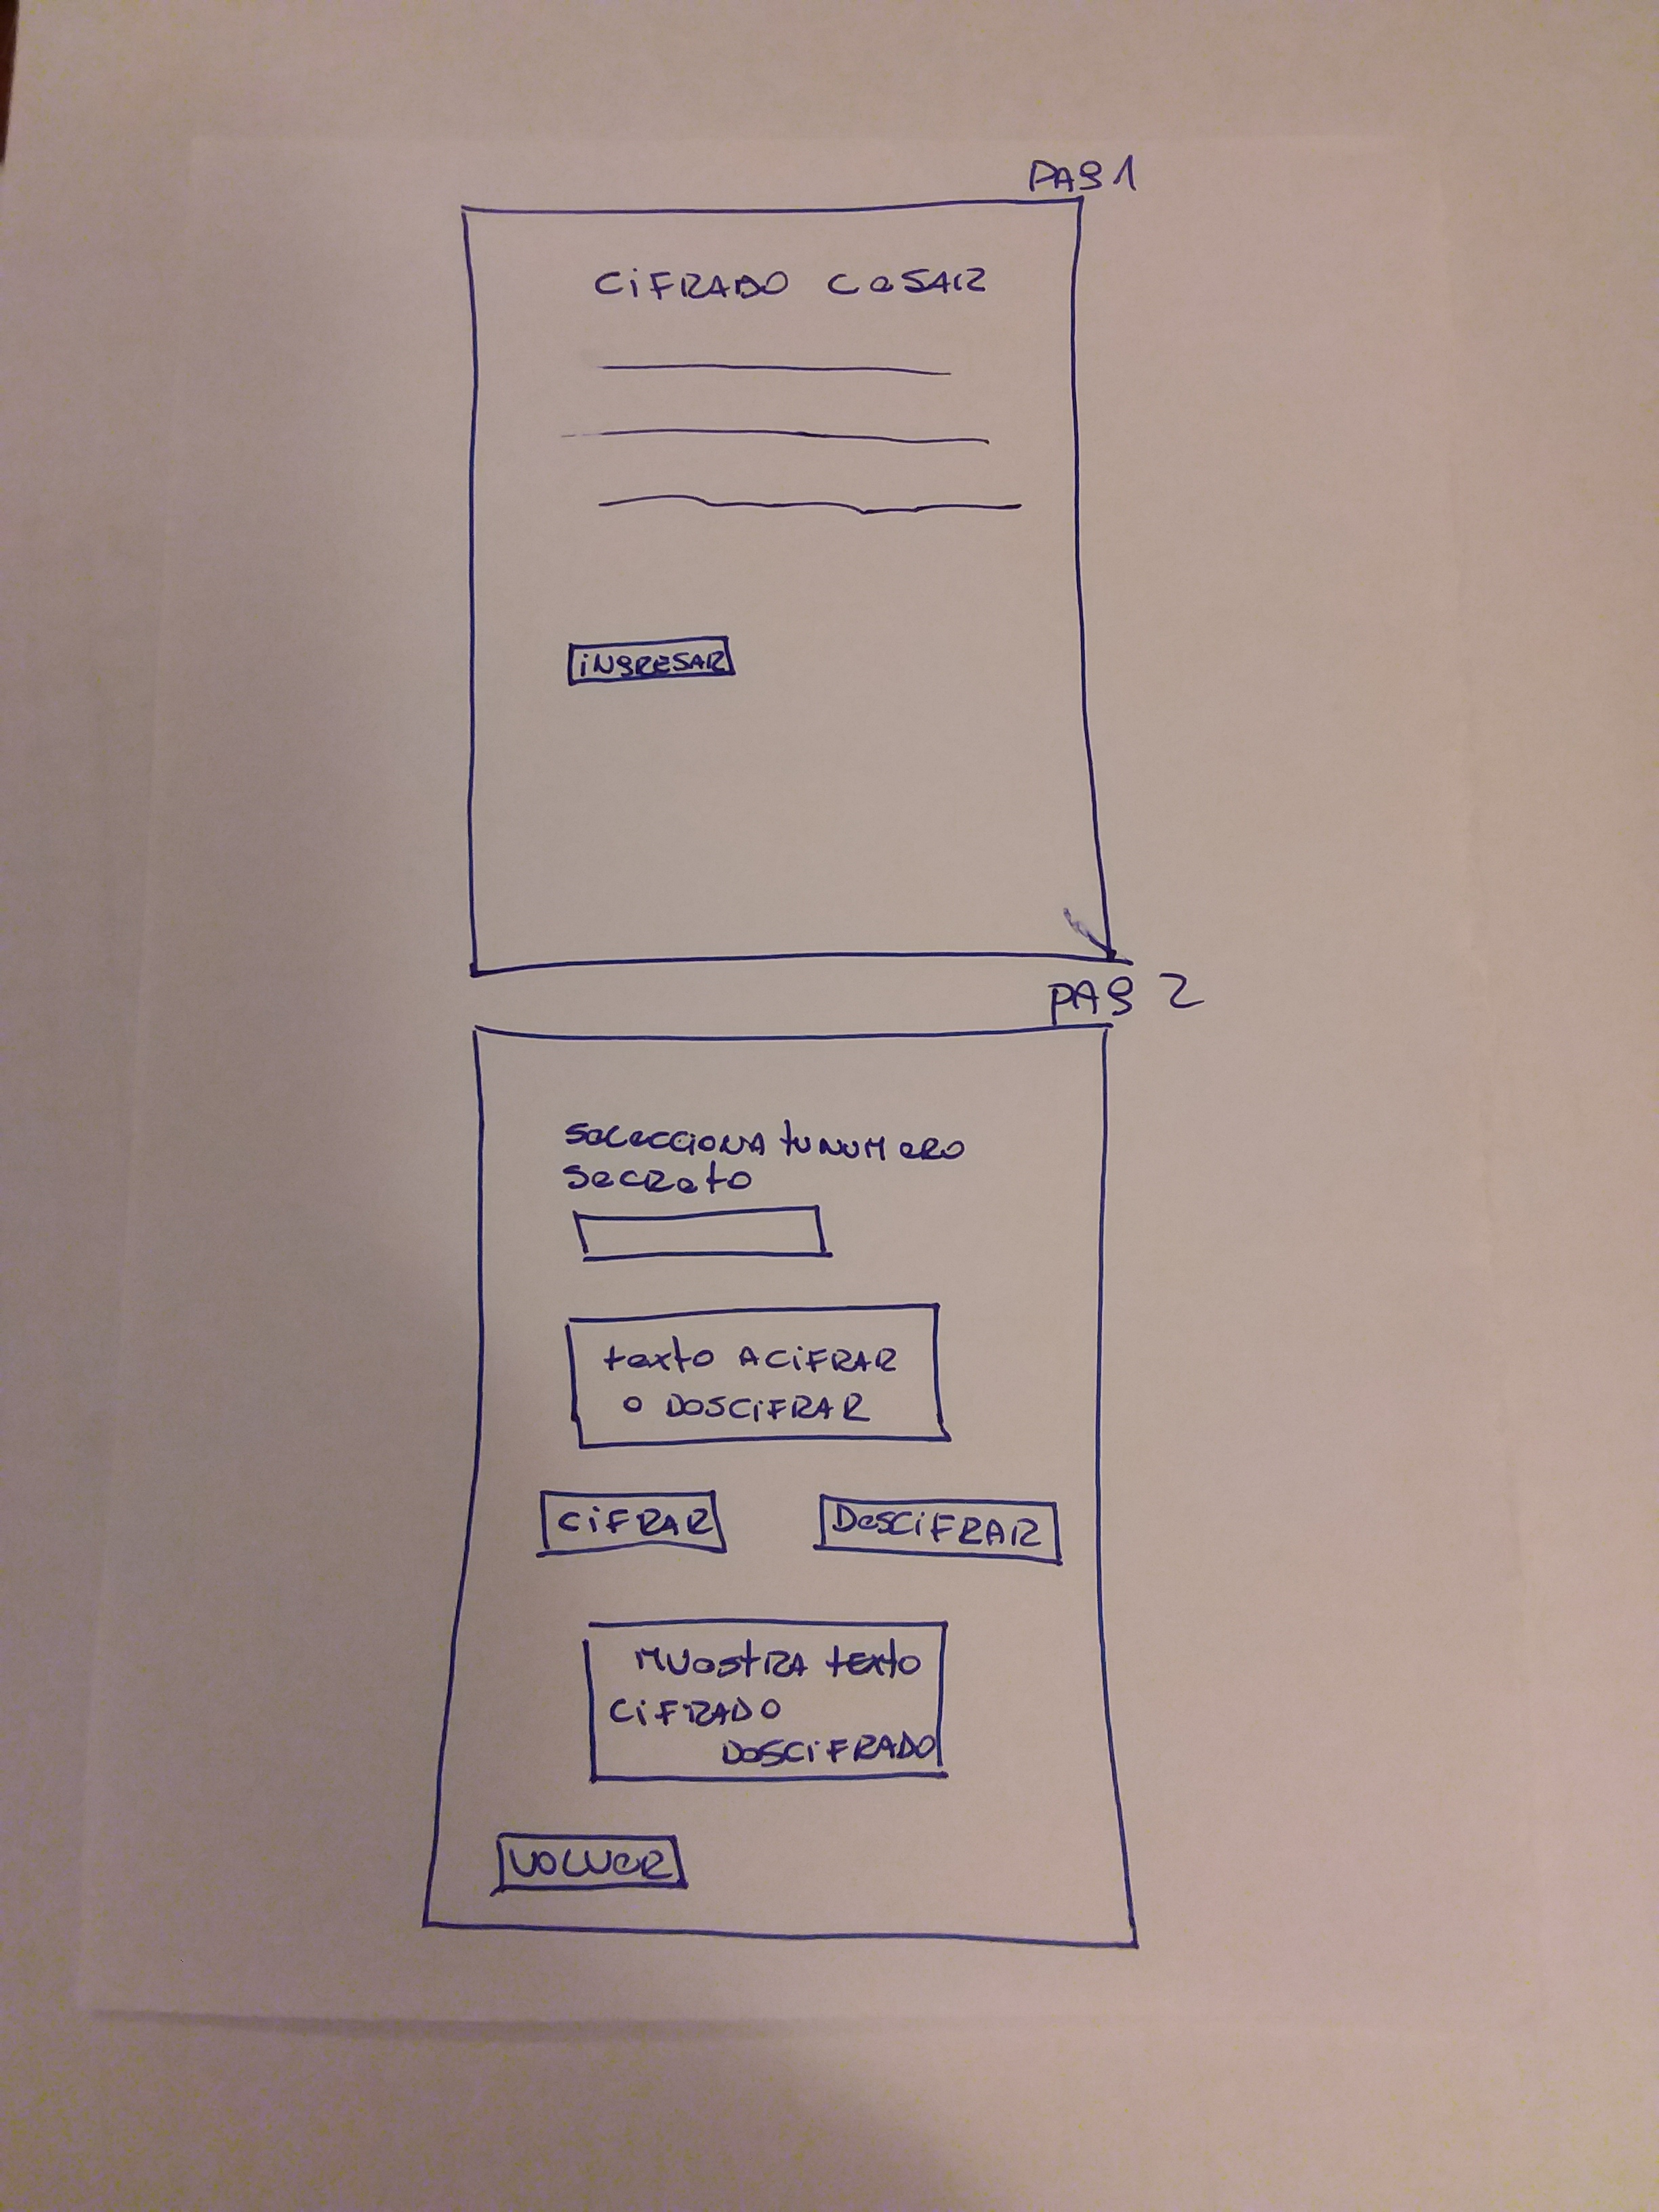 PAG 1
CIFRADO CeSAR
INGRESAR
PAG 2
SeLeCCIONA tu NUMeRO
SeCReto
texto A CIFRAR
o DeSCIFRAR
CIFRAR
DeSCIFRAR
MUeStRA tExto
CIFRADO
DeSCIFRADO
VOLVeR